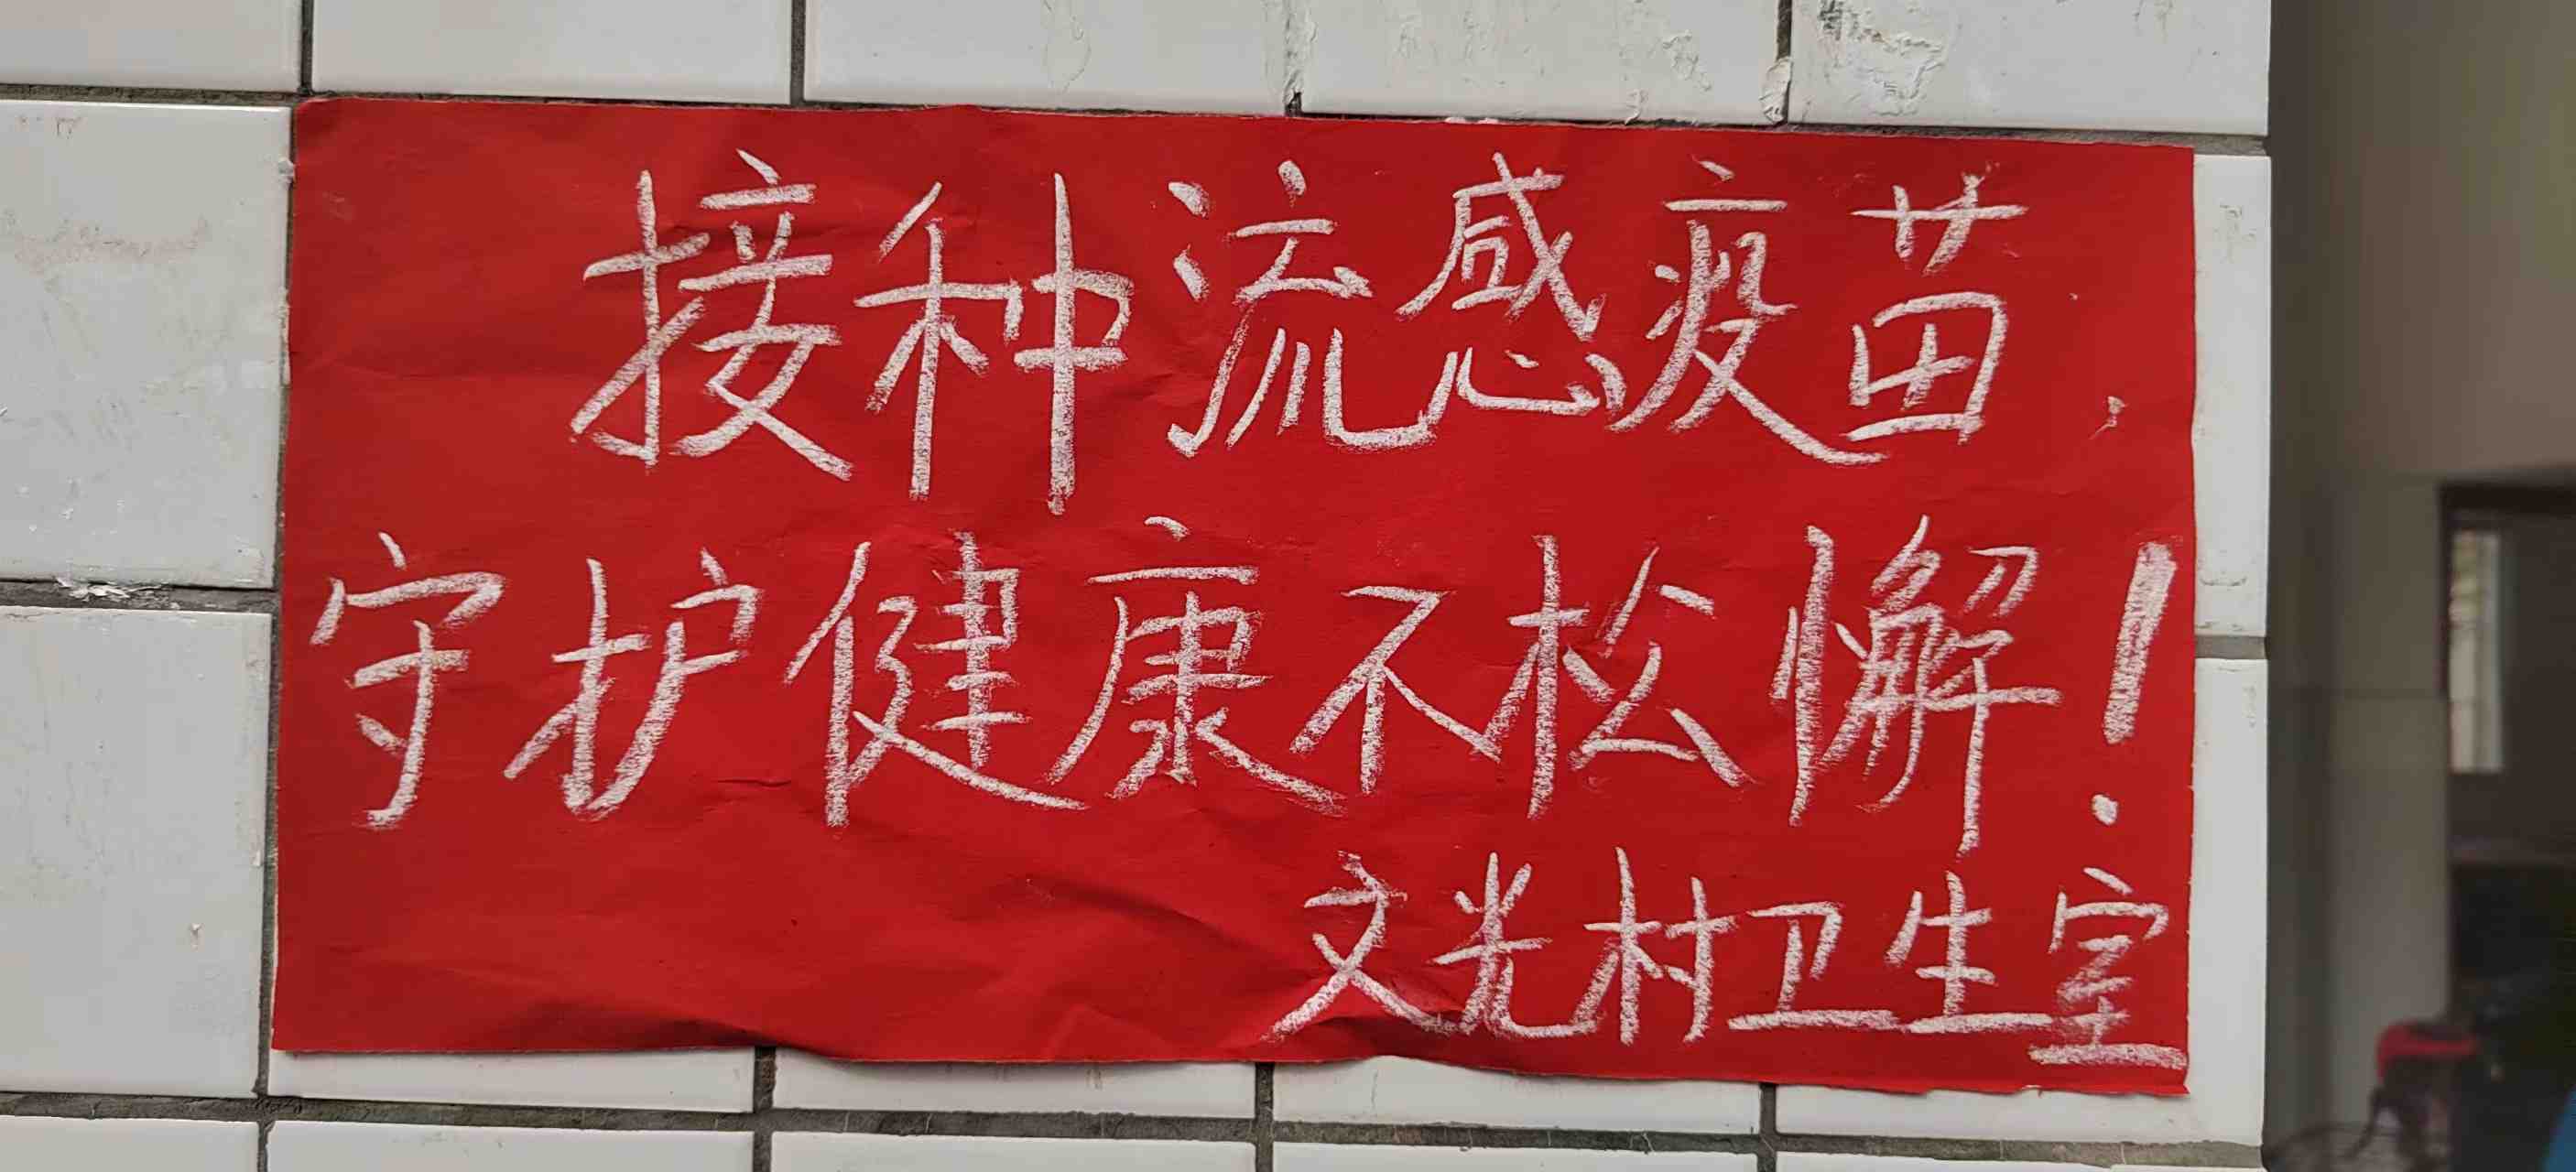 接种流感疫苗，
守护健康不松懈！
文光村卫生室